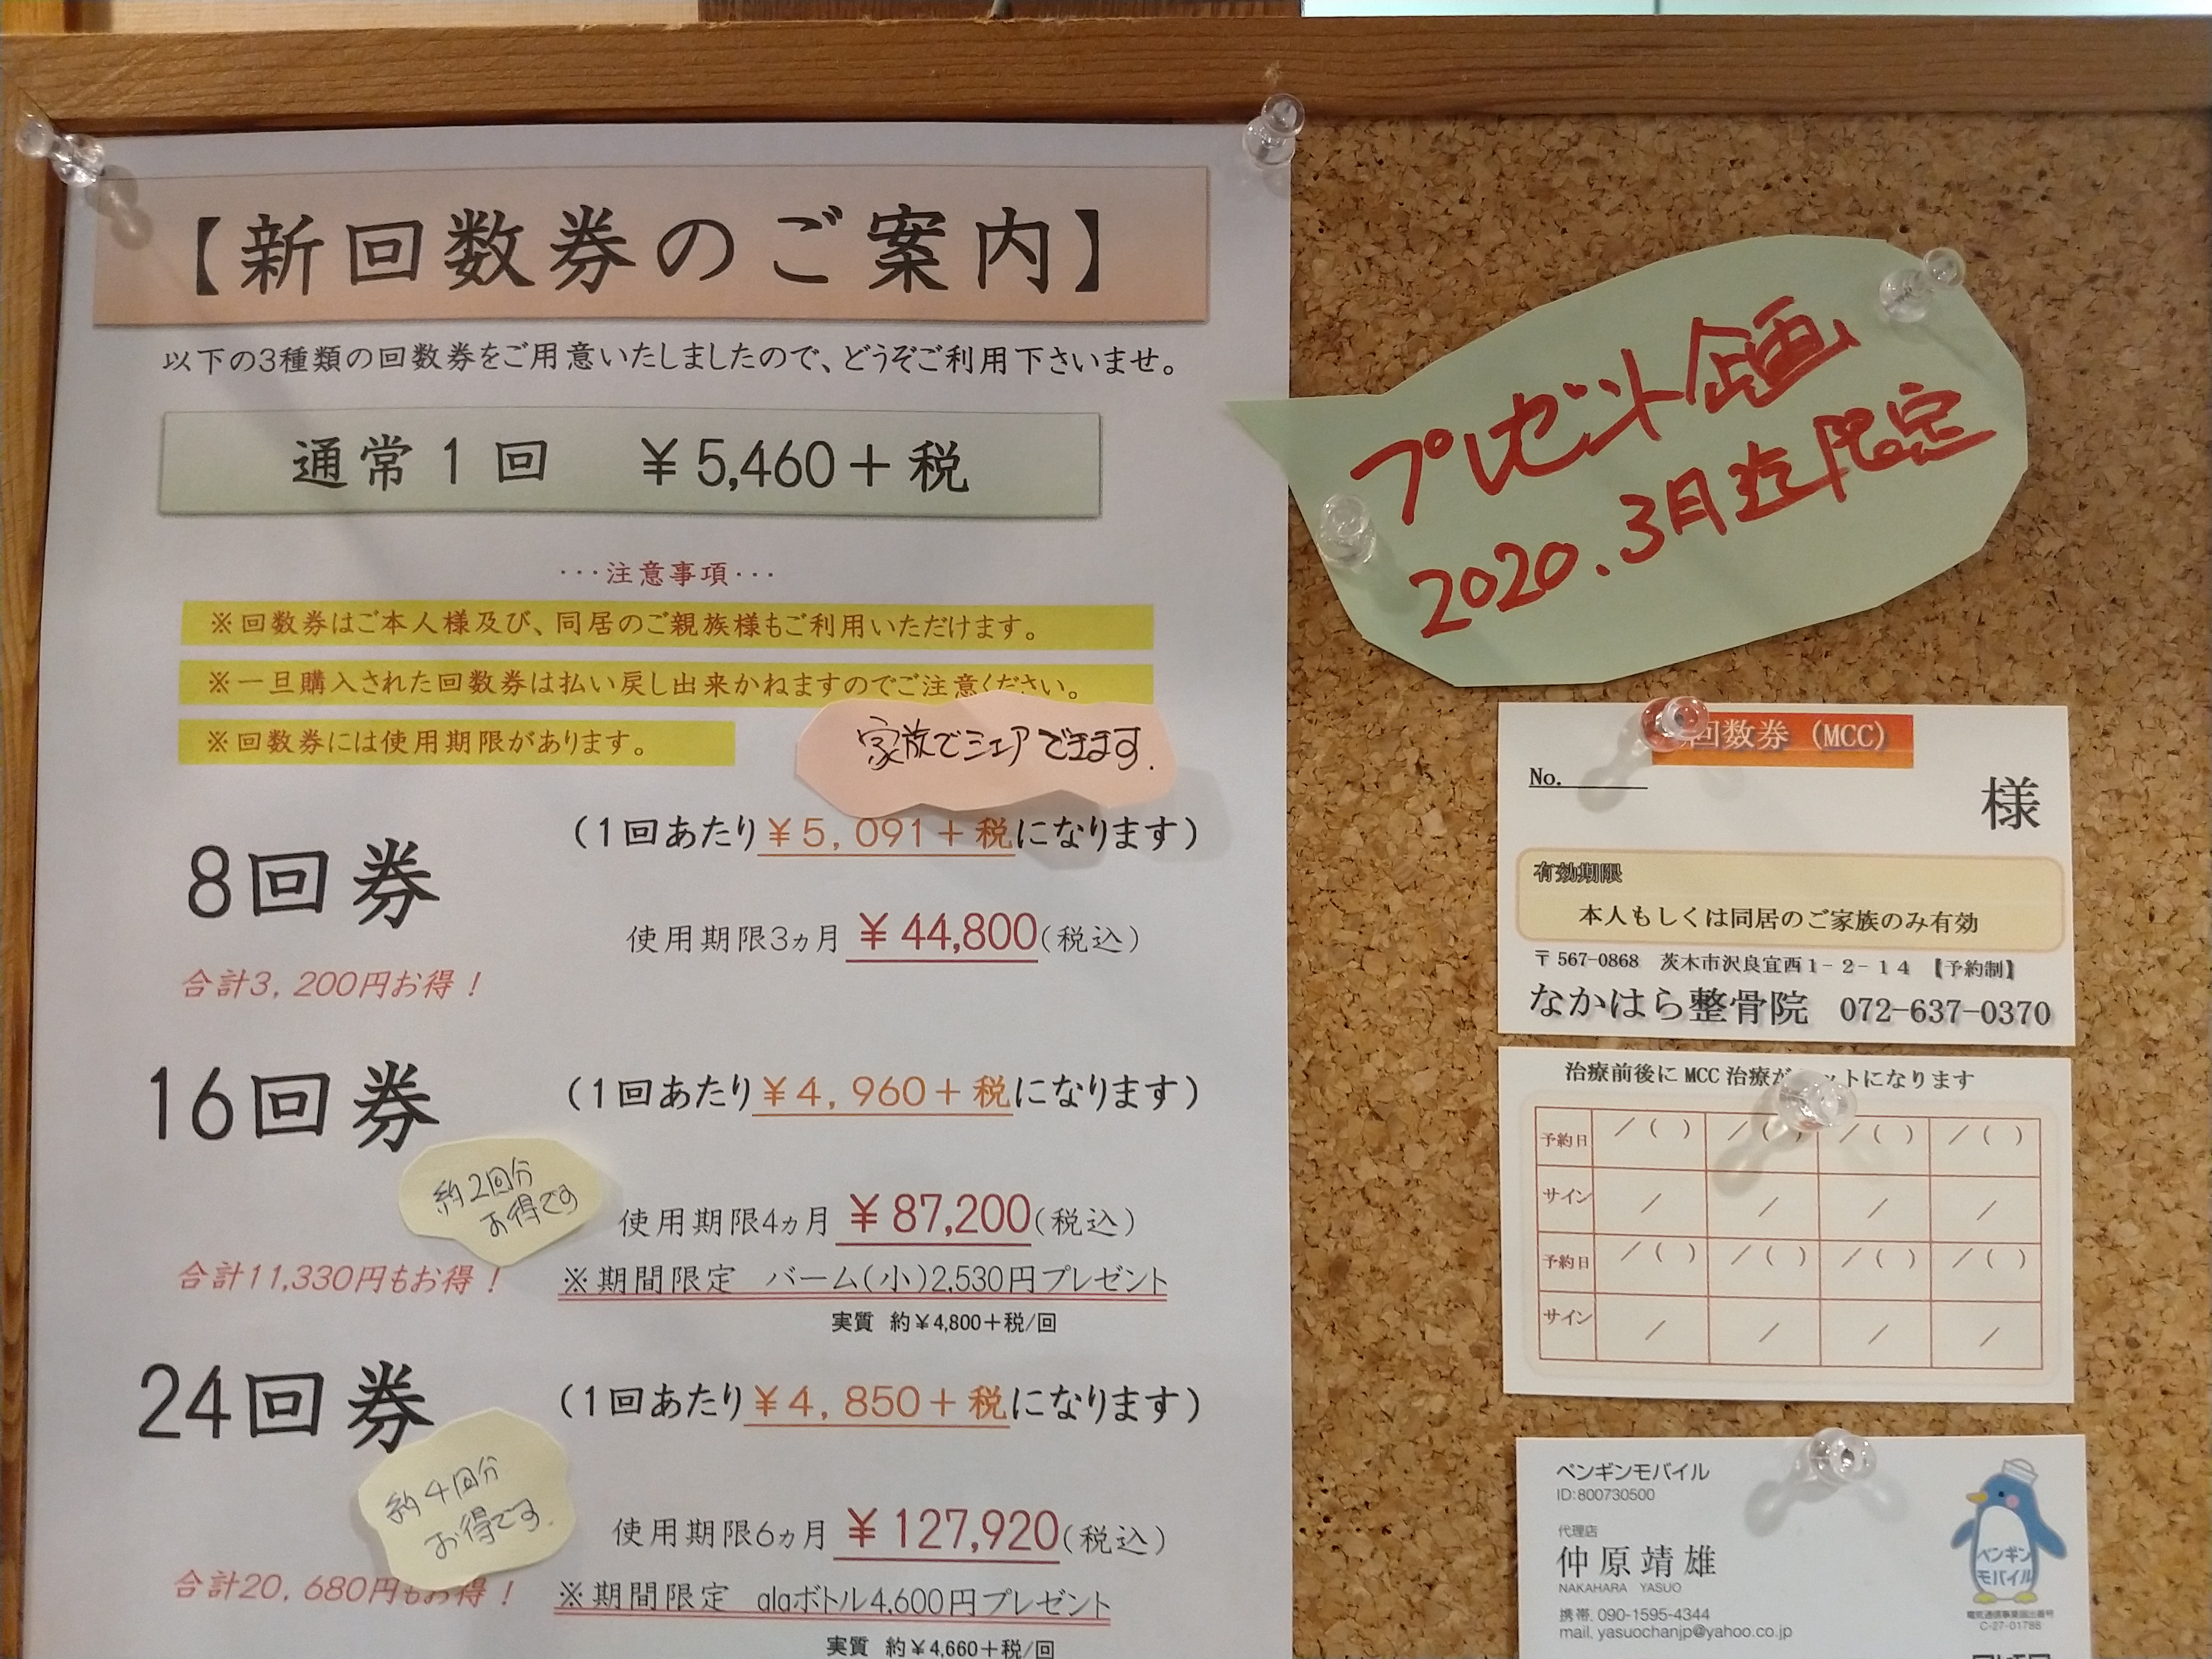 【新回数券のご案内】
以下の3種類の回数券をご用意いたしましたので、どうぞご利用下さいませ。
通常1回 ¥5,460+税
･･･注意事項･･･
※回数券はご本人様及び、同居のご親族様もご利用いただけます。
※一旦購入された回数券は払い戻し出来かねますのでご注意ください。
※回数券には使用期限があります。
家族でシェアできます.
8回券
(1回あたり¥5,091+税になります)
使用期限3ヵ月 ¥44,800(税込)
合計3,200円お得！
16回券
(1回あたり¥4,960+税になります)
約2回分
お得です
使用期限4ヵ月 ¥87,200(税込)
合計11,330円もお得！
※期間限定 バーム(小)2,530円プレゼント
実質 約¥4,800+税/回
24回券
(1回あたり¥4,850+税になります)
約4回分
お得です.
使用期限6ヵ月 ¥127,920(税込)
合計20,680円もお得！
※期間限定 alaボトル4,600円プレゼント
実質 約¥4,660+税/回
プレゼント企画
2020.3月迄限定
回数券(MCC)
No.
様
有効期限
本人もしくは同居のご家族のみ有効
〒567-0868 茨木市沢良宜西1-2-14 【予約制】
なかはら整骨院 072-637-0370
治療前後にMCC治療が ットになります
予約日 /( ) /( ) /( ) /( )
サイン / / / /
予約日 /( ) /( ) /( ) /( )
サイン / / / /
ペンギンモバイル
ID:800730500
代理店
仲原靖雄
NAKAHARA YASUO
携帯. 090-1595-4344
mail. yasuochanjp@yahoo.co.jp
ペンギン
モバイル
電気通信事業届出番号
C-27-01788